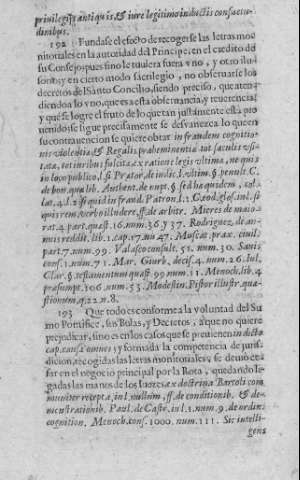 privilegijs antiquis, & iure legitimo inductis consuetu-
dinibus.
192 Fundase el efecto de recogerse las letras mo-
nitorales en la autoridad del Principe, en el credito de
su Consejo, pues sino le tuuiera fuera vno, y otro ilu-
sorio, y en cierto modo sacrilegio, no obseruarse los
decretos del Santo Concilio, siendo preciso, que aten-
diendo a lo vno, que es a esta obseruancia, y reuerencia,
y que se logre el fruto de lo que tan justamente està pro
uenido, se sigue precisamente se desvanezca lo que en
su contrauencion se quiere obrar in fraudem cognitio-
nis violentiæ, & Regalis præheminentia tot sæculis vsi-
tata, tot iuribus fulcita, ex ratione legis vltima, ne quis
in loco publico, l. si Prætor, de iudic. l. vltim. §. penult. C.
de bon. quæ lib. Authent. de nupt. §. sed hoc quidem
lat. 4. l. 2. si quid in fraud. Patron. l. 1. C. eod. glos. in l. si
quis rem, verbo illudere, ff. de arbitr. Mieres de maio-
rat. 4. part. quæst. 16. num. 36. y 37. Rodriguez, de an-
nuis reddit. lib. 1. cap. 17. num. 47. Muscat. prax. ciuil.
part. 7. num. 99. Valasco consult. 51. num. 30.
conf. 1. num. 71. Mar. Giurb. decis. 4. num. 26. Iul.
Clar. §. testamentum quæst. 99. num. 11. Menoch. lib. 4.
præsumpt. 106. num. 53. Modestin. Pistor illustr. quæ-
stionum, q. 22. n. 8.
193 Que todo es conforme a la voluntad del Su
mo Pontifice, sus Bulas, y Decretos, a que no quiere
prejudicar, sino es en los casos que se preuienen in dicto
cap. causa omnes; y formada la competencia de juris-
diccion, recogidas las letras monitoriales, se deuio ce-
sar en el negocio principal por la Rota, quedando li-
gadas las manos de los Iuezes ex doctrina Bartoli com
muniter recepta, in l. nullum, ff. de conditionib. & de-
monstrationib. Paul. de Castr. in l. 1. num. 9. de ordin.
cognition. Menoch. conf. 1000. num. 111. Sic intelli-
gens